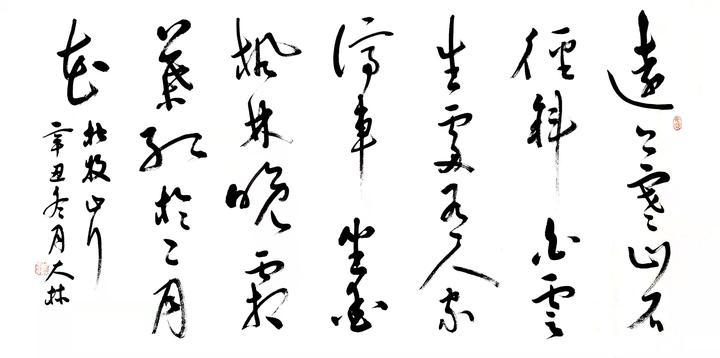 遠上寒山石
徑斜白雲
生處有人家
停車坐愛
楓林晚霜
葉紅於二月
花
杜牧山行
辛丑冬月大林